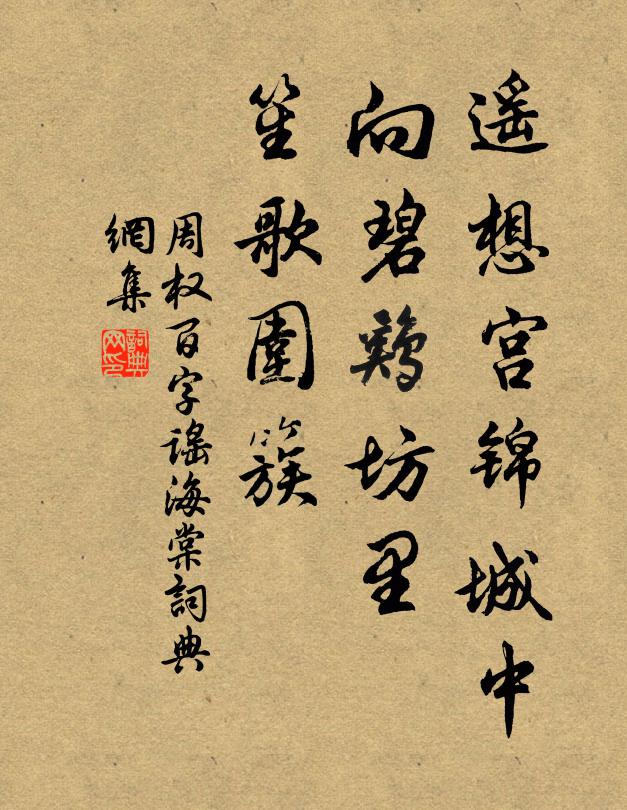 遥想宫锦城中
向碧鸡坊里
笙歌围簇
周权百字谣海棠词典
網集
詞典网印